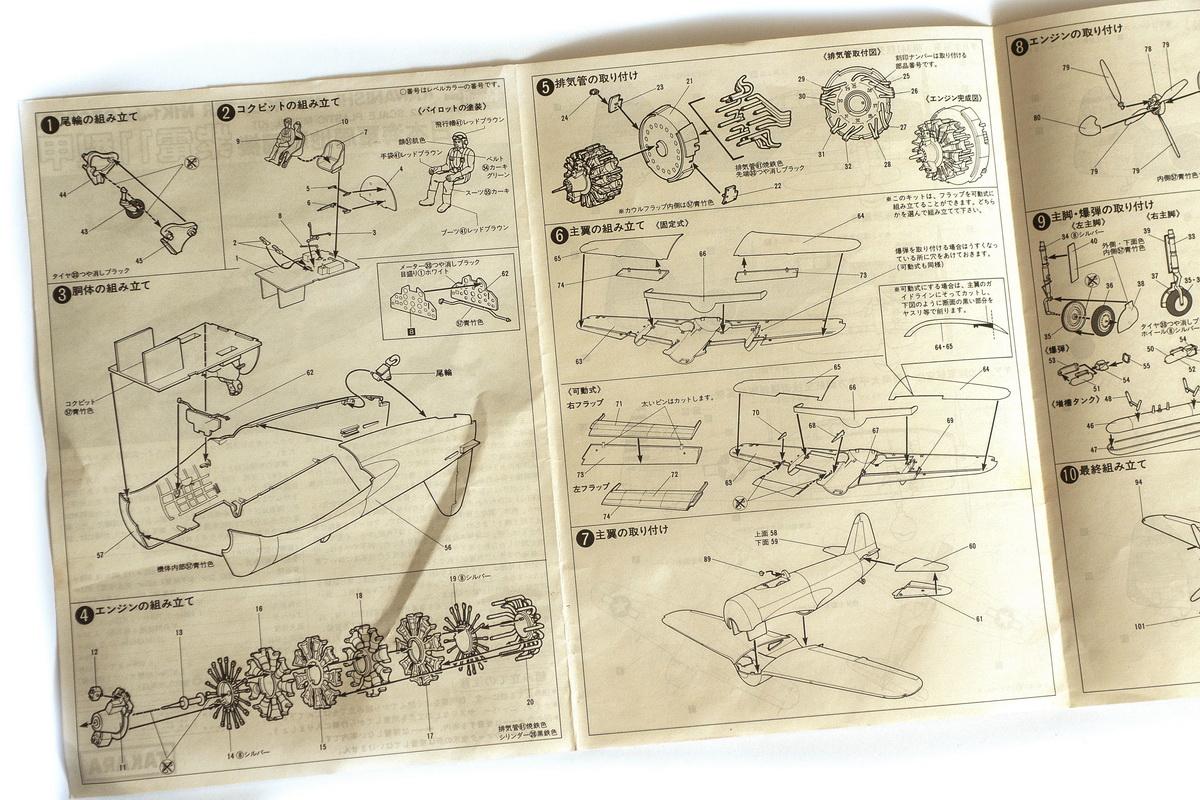 1 尾輪の組み立て
44
43
45
タイヤ㉝つや消しブラック
2 コクピットの組み立て
○番号はレベルカラーの番号です。
〈パイロットの塗装〉
飛行帽㊶レッドブラウン
顔�51肌色
手袋㊶レッドブラウン
ベルト
カーキ
グリーン
スーツ�55カーキ
ブーツ㊶レッドブラウン
9
10
7
4
5
6
8
2
1
3
3 胴体の組み立て
メーター㉝つや消しブラック
目盛り①ホワイト
62
青竹色
B
コクピット
青竹色
62
尾輪
57
機体内部青竹色
56
4 エンジンの組み立て
12
13
16
18
19 ⑧シルバー
11
14 ⑧シルバー
15
17
20
排気管焼鉄色
シリンダー黒鉄色
5 排気管の取り付け
24
23
21
22
※カウルフラップ内側は青竹色
排気管焼鉄色
先端㉝つや消しブラック
〈排気管取付図〉
刻印ナンバーは取り付ける
部品番号です。
29
30
31
32
28
27
26
25
〈エンジン完成図〉
※このキットは、フラップを可動式に
組み立てることができます。どちら
かを選んで組み立て下さい。
6 主翼の組み立て 〈固定式〉
65
74
66
64
73
63
爆弾を取り付ける場合はうすくなっ
ている所に穴をあけておきます。
(可動式も同様)
※可動式にする場合は、主翼のガ
イドラインにそってカットし、
下図のように断面の黒い部分を
ヤスリ等で削ります。
64・65
〈可動式〉
右フラップ
71
太いピンはカットします。
73
左フラップ
72
74
65
66
64
70
68
67
69
63
7 主翼の取り付け
上面 58
下面 59
89
60
61
8 エンジンの取り付け
79
78
79
80
79
内側
9 主脚・爆弾の取り付け
〈左主脚〉
〈右主脚〉
34 ⑧シルバー
40
外側・下面色
内側青竹色
39
33
36
38
37
35
タイヤ㉝つや消し
ホイール⑧シルバー
〈爆弾〉
53
54
50
54
52
55
51
〈増槽タンク〉
48
46
47
10 最終組み立て
94
101